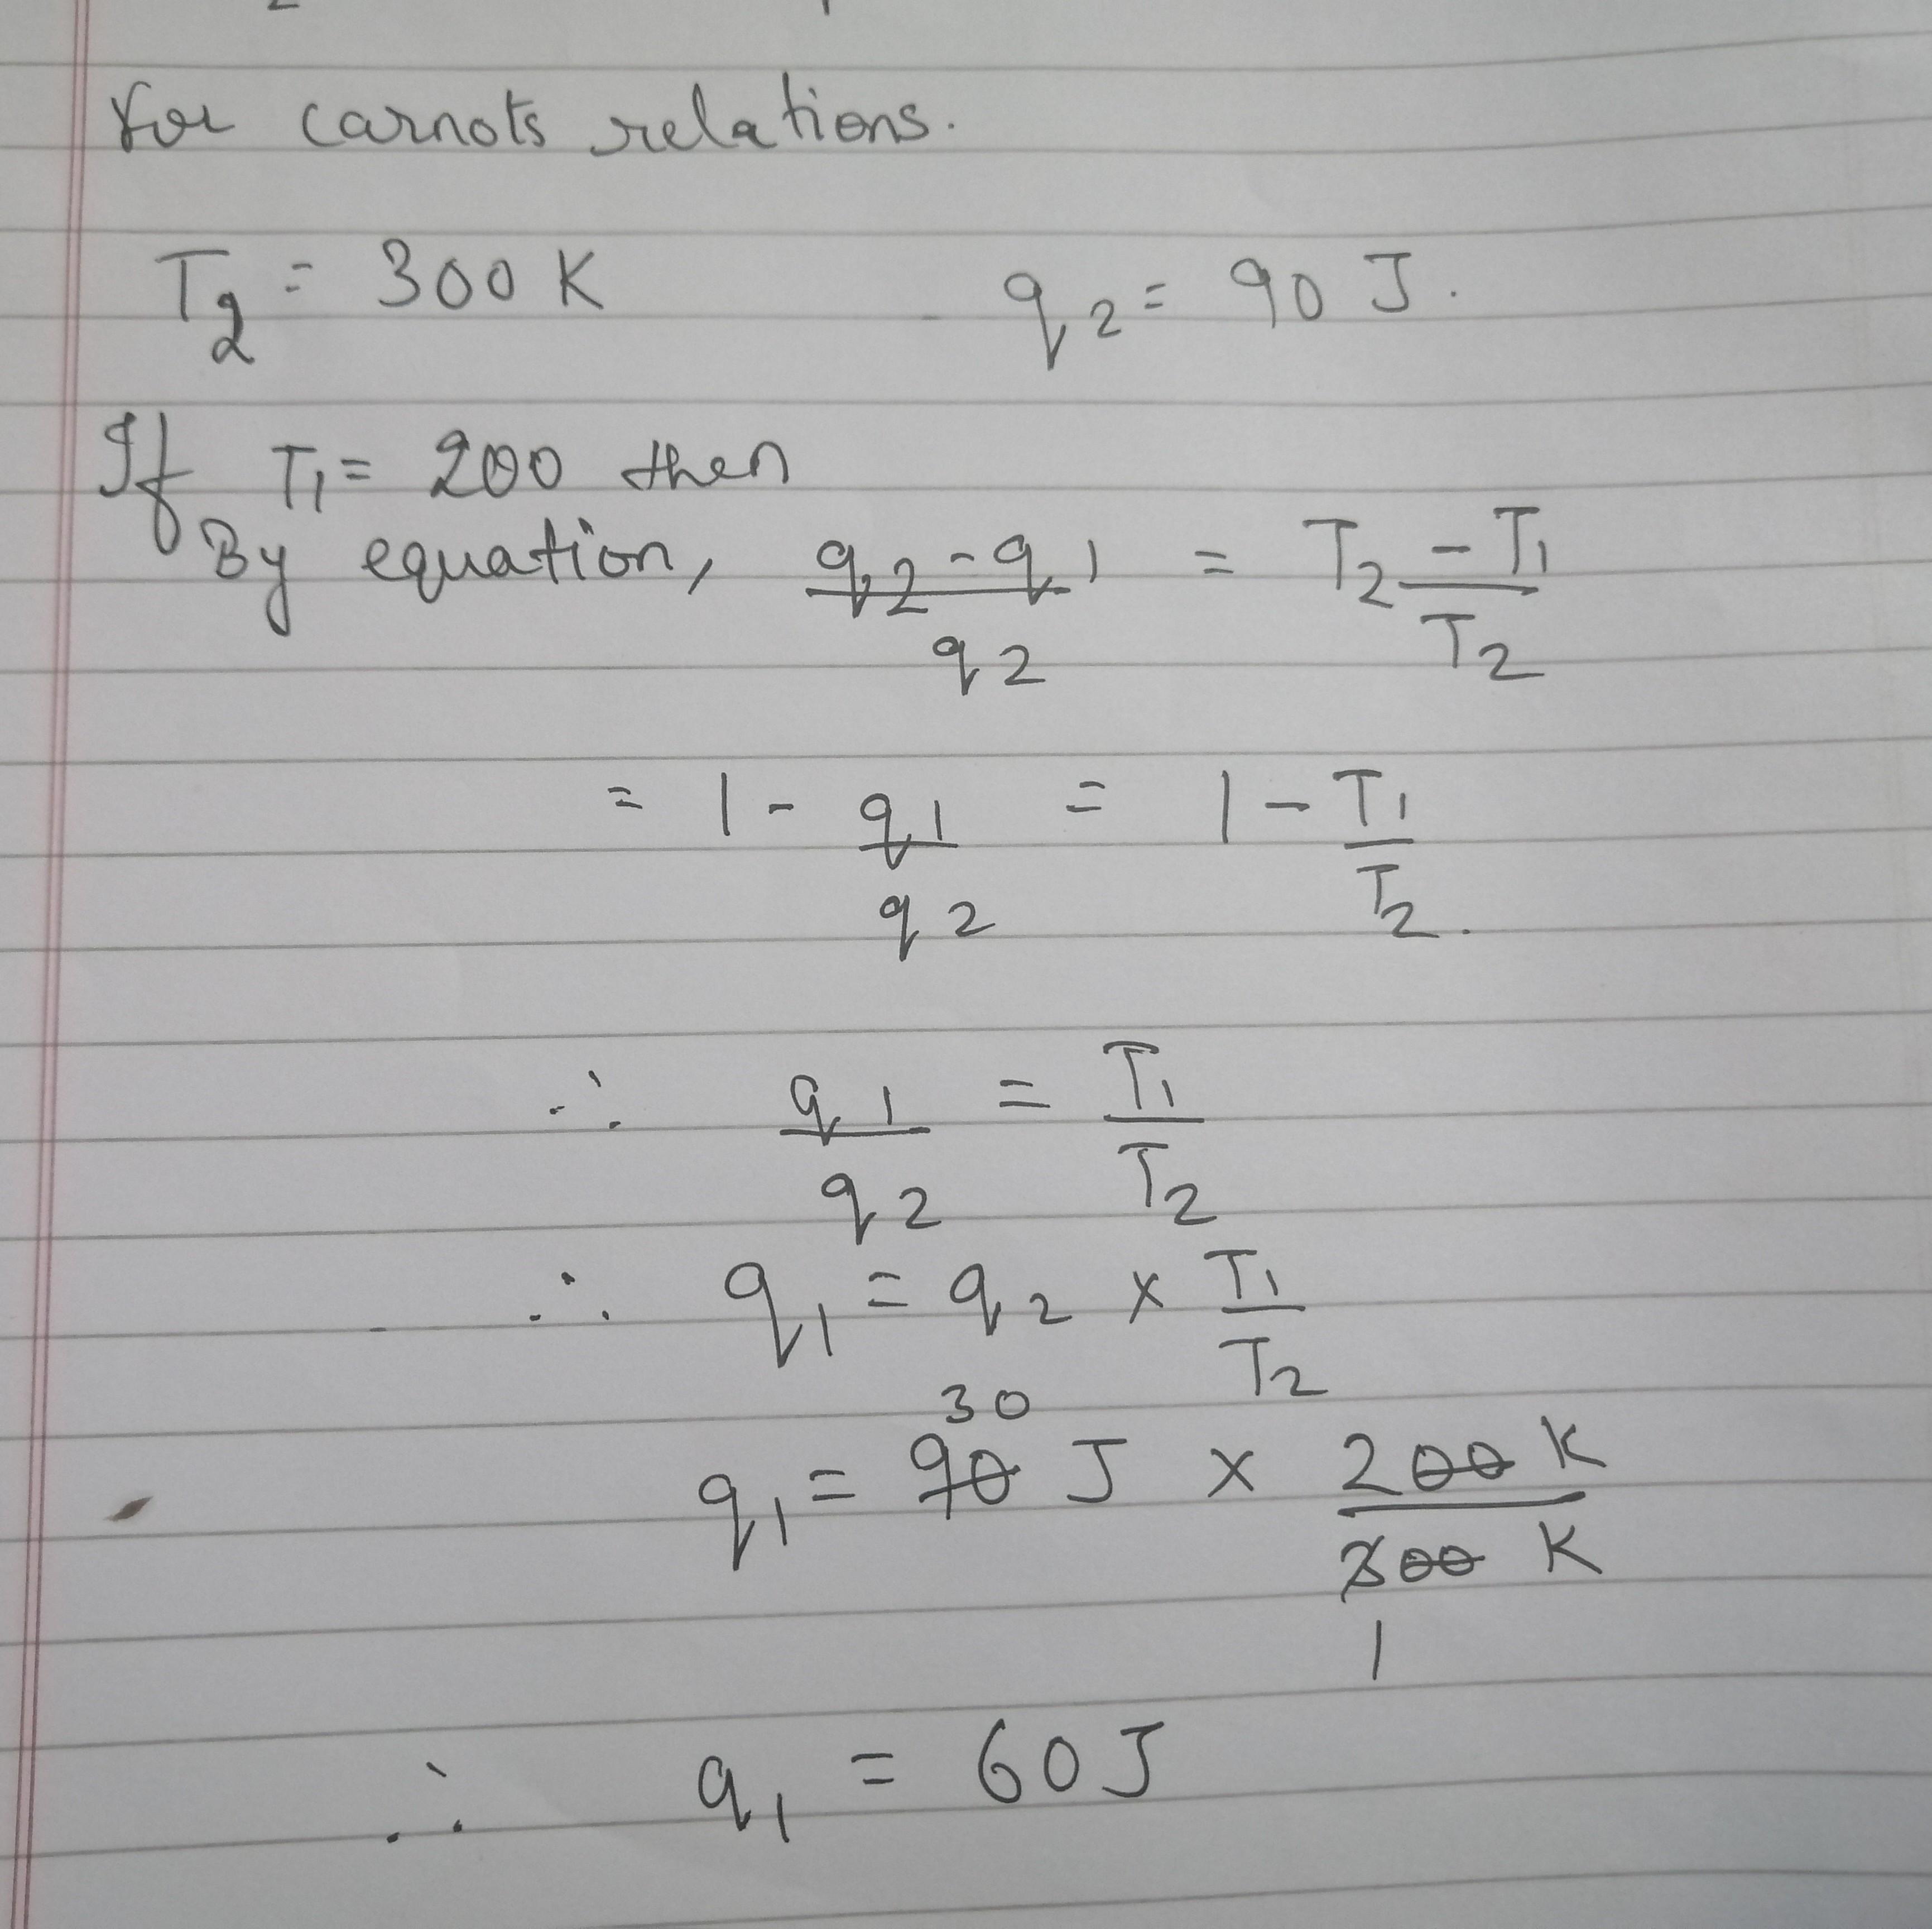 For carnots relations.
T2 = 300 K q2 = 90 J.
If T1 = 200 then
By equation, q2 - q1 / q2 = T2 - T1 / T2
= 1 - q1 / q2 = 1 - T1 / T2.
∴ q1 / q2 = T1 / T2
∴ q1 = q2 x T1 / T2
30
q1 = 90 J x 200 K / 300 K
1
∴ q1 = 60 J